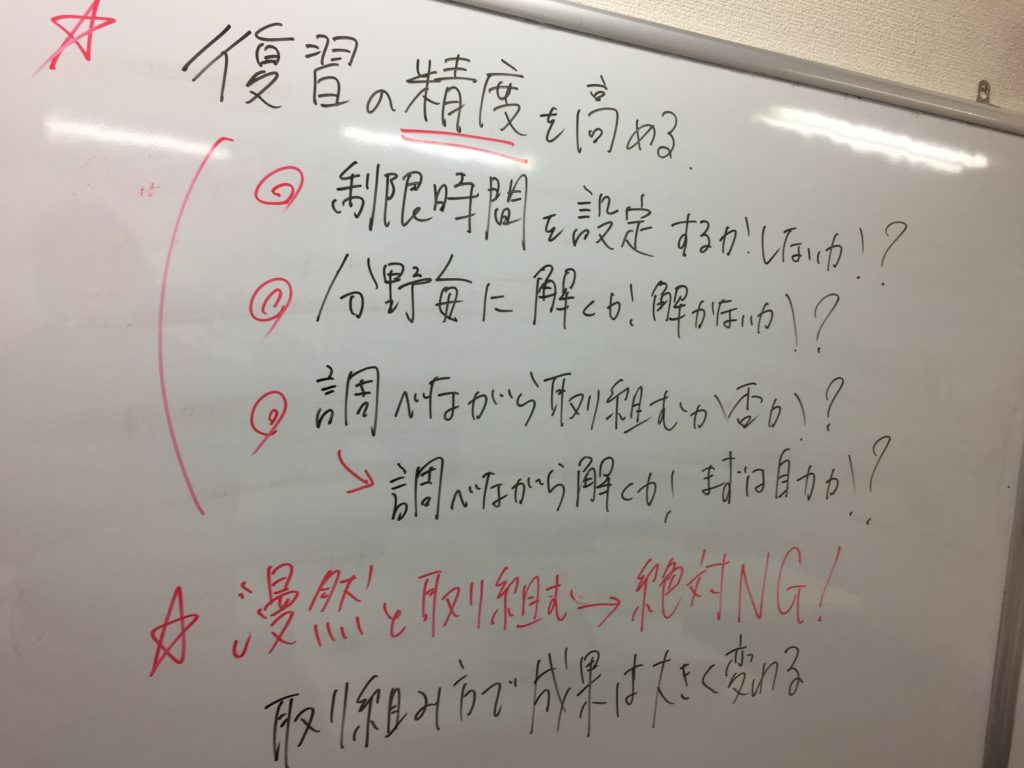 ☆ 復習の精度を高める.
◎ 制限時間を設定するか!しないか!?
◎ 分野毎に解くか!解かないか!?
◎ 調べながら取り組むか否か!?
→ 調べながら解くか!まずは自力か!?
☆ "漫然"と取り組む→絶対NG!
取り組み方で成果は大きく変わる